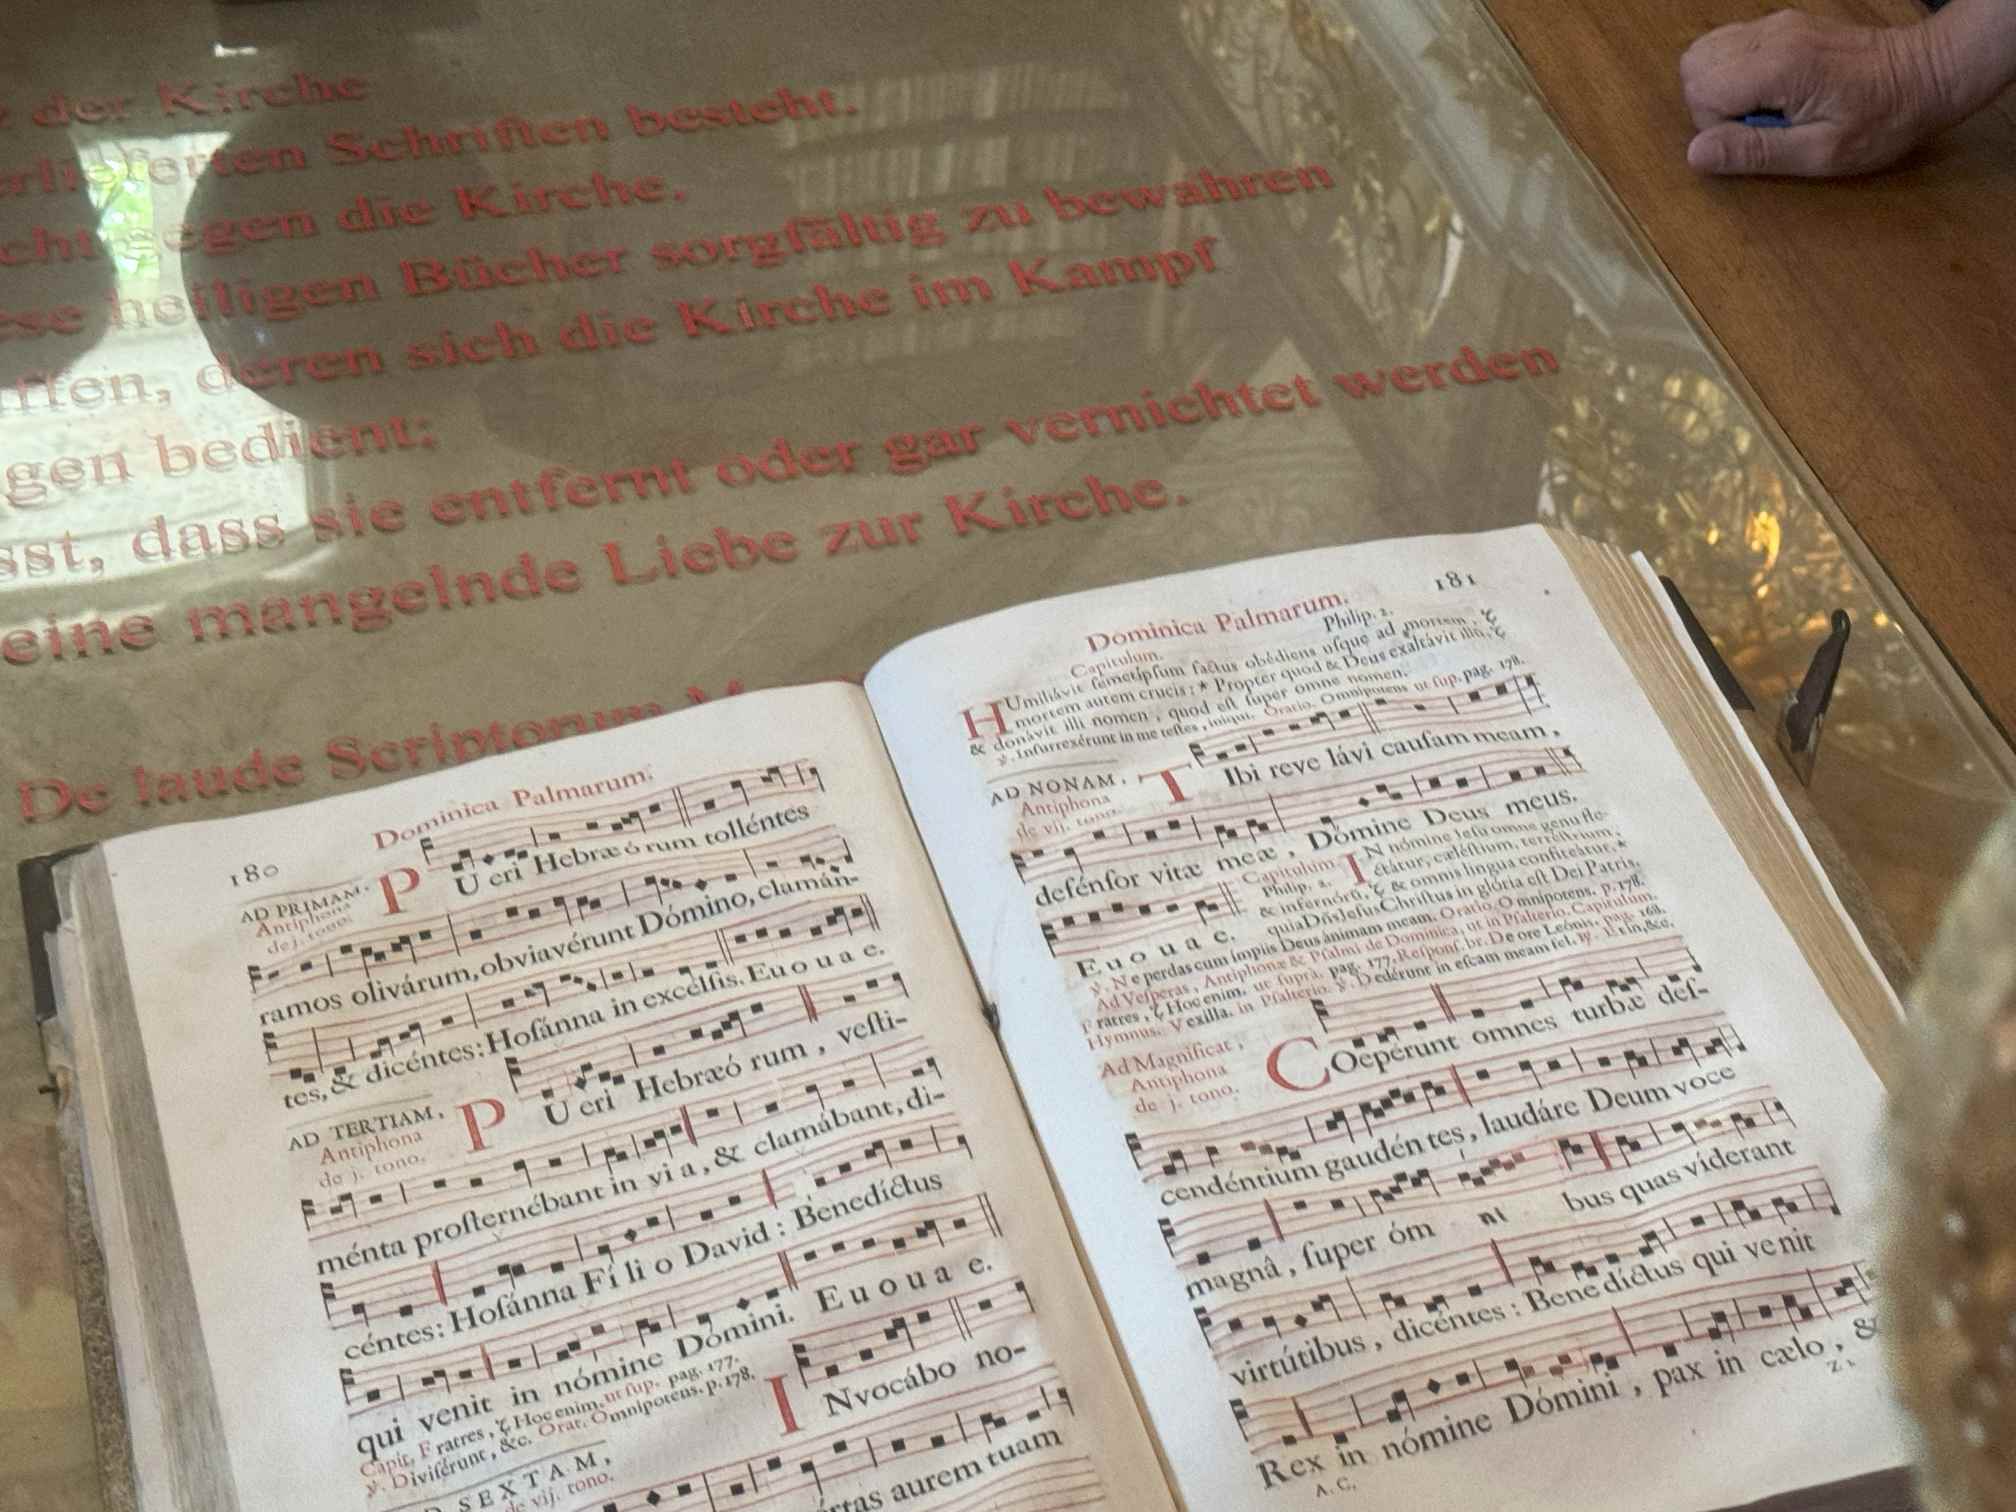 der Kirche
Schriften besteht.
gegen die Kirche.
heiligen Bücher sorgfältig zu bewahren
deren sich die Kirche im Kampf
bedient;
dass sie entfernt oder gar vernichtet werden
eine mangelnde Liebe zur Kirche.
De laude Scriptorum
180
Dominica Palmarum.
AD PRIMAM.
Antiphona
de j. tono.
PU eri Hebræó rum tolléntes
ramos olivárum, obviavérunt Dómino, clamán-
tes, & dicéntes: Hoſánna in excélſis. E u o u a e.
AD TERTIAM.
Antiphona
de j. tono.
PU eri Hebræó rum, veſti-
ménta proſternébant in vi a, & clamábant, di-
céntes: Hoſánna Fí li o David: Benedíctus
qui venit in nómine Dómini. E u o u a e.
Capit. Fratres, ⁊ Hoc enim. ut ſup. pag. 177.
℣. Diviſérunt, &c. Orat. Omnípotens. p. 178.
SEXTAM,
de vij. tono.
INvocábo no-
aurem tuam
181
Dominica Palmarum.
Capitulum.
Philip. 2.
HUmiliávit ſemetípſum factus obédiens uſque ad mortem, ⁊
mortem autem crucis: * Propter quod & Deus exaltávit illũ, ⁊
& donávit illi nomen, quod eſt ſuper omne nomen.
℣. Inſurrexérunt in me teſtes, iníqui. Oratio. Omnípotens ut ſup. pag. 178.
AD NONAM.
Antiphona
de vij. tono.
TIbi reve lávi cauſam meam,
defénſor vitæ meæ, Dómine Deus meus.
E u o u a e.
Capitulum.
Philip. 2.
IN nómine Ieſu omne genu fle-
ctátur, cæléſtium, terréſtrium,
& infernórũ, ⁊ & omnis lingua confiteátur, *
quia Dñs Jeſus Chriſtus in glória eſt Dei Patris.
℣. Ne perdas cum ímpiis Deus ánimam meam. Oratio. Omnípotens. p. 178.
Ad Veſperas, Antiphonæ & Pſalmi de Dominica, ut in Pſalterio. Capitulum.
Fratres, ⁊ Hoc enim. ut ſupra, pag. 177. Reſponſ. br. De ore Leónis. pag. 168.
Hymnus. Vexilla. in Pſalterio. ℣. Dedérunt in eſcam meam fel.
Ad Magnificat,
Antiphona
de j. tono.
COepérunt omnes turbæ deſ-
cendéntium gaudén tes, laudáre Deum voce
magnâ, ſuper óm ni bus quas víderant
virtútibus, dicéntes: Bene díctus qui ve nit
Rex in nómine Dómini, pax in cælo, &
A. C.
Z 1.